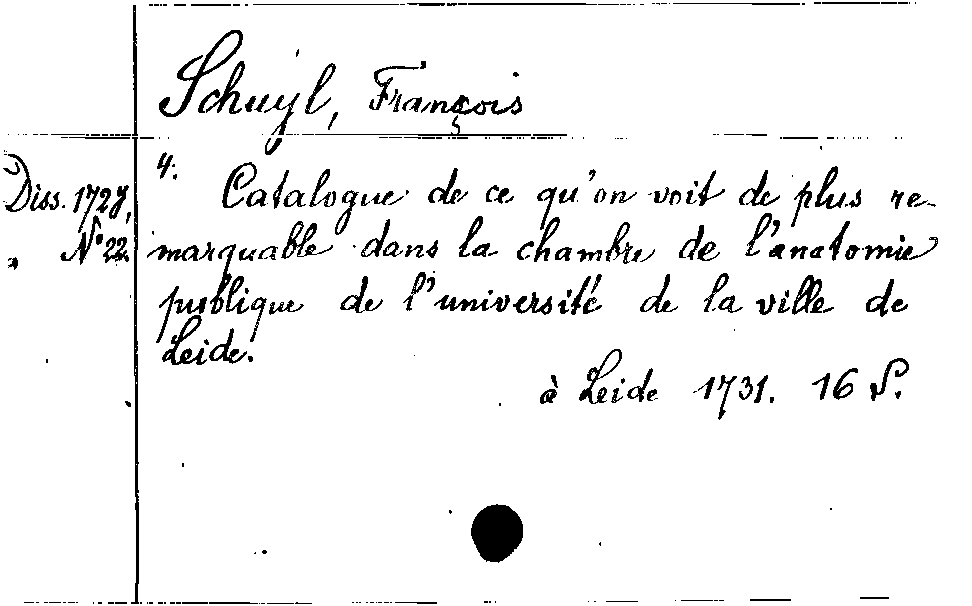 Schuyl, François
4.
Diss. 1728,
Nº 22.
Catalogue de ce qu'on voit de plus re-
marquable dans la chambre de l'anatomie
publique de l'université de la ville de
Leide.
à Leide 1731. 16 S.